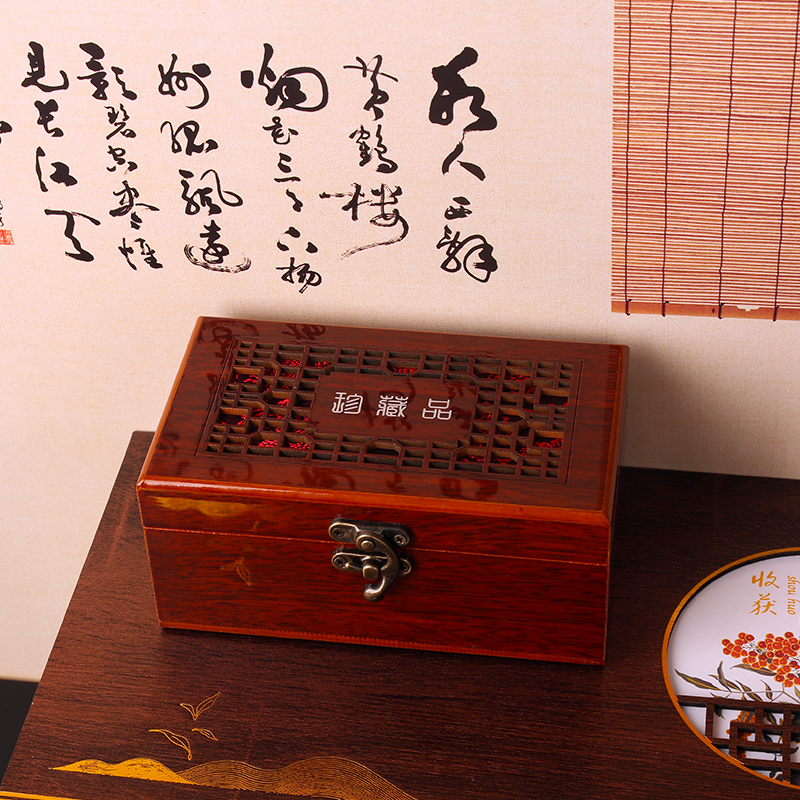 故人西辭
黄鶴楼
烟花三月下扬
州孤帆遠
影碧空尽惟
見長江天
珍藏品
收获
shou huo